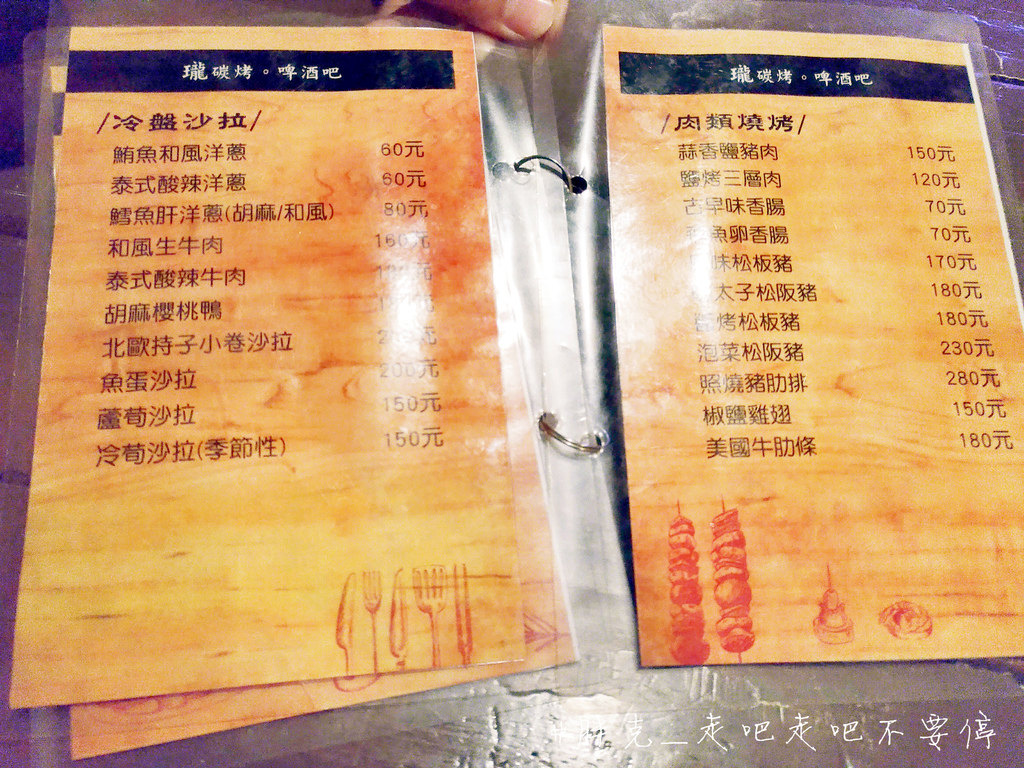 瓏碳烤。啤酒吧
/冷盤沙拉/
鮪魚和風洋蔥 60元
泰式酸辣洋蔥 60元
鱈魚肝洋蔥(胡麻/和風) 80元
和風生牛肉 160元
泰式酸辣牛肉
胡麻櫻桃鴨
北歐持子小卷沙拉
魚蛋沙拉 200元
蘆荀沙拉 150元
冷荀沙拉(季節性) 150元
瓏碳烤。啤酒吧
/肉類燒烤/
蒜香鹽豬肉 150元
鹽烤三層肉 120元
古早味香腸 70元
魚卵香腸 70元
味松板豬 170元
太子松阪豬 180元
烤松板豬 180元
泡菜松阪豬 230元
照燒豬肋排 280元
椒鹽雞翅 150元
美國牛肋條 180元
克_走吧走吧不要停